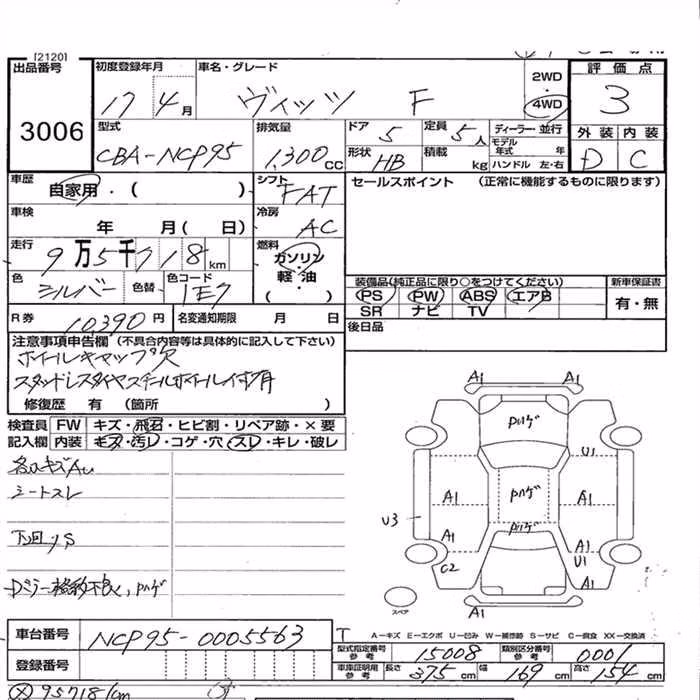 [2120]
出品番号 初度登録年月 車名・グレード 2WD 評価点
3006 17 4月 ヴィッツ F 4WD 3
型式 排気量 ドア 定員 ディーラー・並行 外装 内装
CBA-NCP95 1,300CC 5 5人 モデル年式 年 D C
形状 HB 積載 kg ハンドル 左・右
車歴 自家用・( ) シフト FAT セールスポイント (正常に機能するものに限ります)
車検 年 月( 日) 冷房 AC
走行 9万5千718km 燃料 ガソリン・軽油 ( )
色 シルバー 色替 色コード 1E7
装備品(純正品に限り○をつけてください) 新車保証書
PS PW ABS エアB 有・無
SR ナビ TV
R券 10,390円 名変通知期限 月 日 後日品
注意事項申告欄 (不具合内容等は具体的に記入して下さい)
ホイールキャップ欠
スタッドレスタイヤスチールホイール付有
修復歴 有 (箇所 )
検査員 FW キズ・飛石・ヒビ割・リペア跡・×要
記入欄 内装 キズ・汚レ・コゲ・穴・スレ・キレ・破レ
各所キズAU
シートスレ
下回りS
Dミラー格納不良, Pハゲ
A1
Pハゲ
U1
A1 Pハゲ A1
U3
Pハゲ
A1 A1
C2 U1
A1
A1
スペア
車台番号 NCP95-0005563
A-キズ E-エクボ U-凹み W-補修跡 S-サビ C-腐食 XX-交換済
型式指定番号 参考 15008 類別区分番号 参考 0001
登録番号 車庫証明用 参考 長さ 375cm 幅 169cm 高さ 154cm
95718km